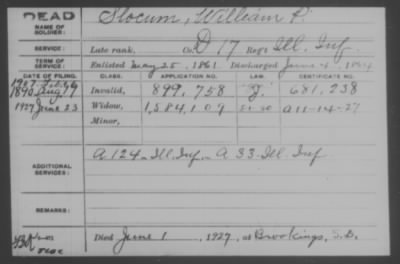 DEAD
NAME OF SOLDIER: Slocum, William P.
SERVICE: Late rank, Co. D 17 Reg't Ill. Inf.
TERM OF SERVICE: Enlisted May 25, 1861 Discharged June 4, 1864
DATE OF FILING. CLASS. APPLICATION NO. LAW. CERTIFICATE NO.
1890 Aug 19 Invalid, 899,758 J. 681,238
1927 June 23 Widow, 1,584,109 a 11-14-27
Minor,
ADDITIONAL SERVICES: A 124 Ill. Inf. A 33 Ill. Inf
REMARKS:
Died June 1, 1927, at Brookings, S.D.